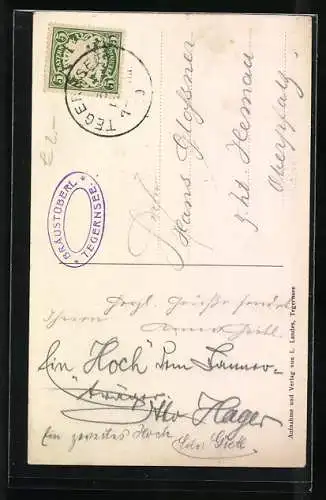 TEGERNSEE
5 5
€ 2,-
BRÄUSTÜBERL
* TEGERNSEE. *
Hans Gloßner
z. Zt. Hemau
Oberpfalz
Herzl. Grüße sendet
Ihnen
Ein Hoch dem
Hager
Ein zweites Hoch
Aufnahme und Verlag von L. Landes, Tegernsee